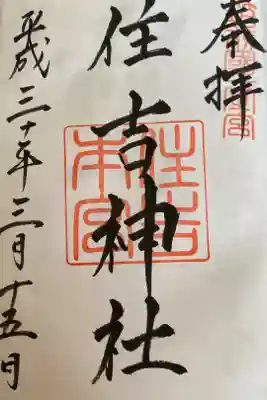 奉拝
住吉神社
平成三十年三月十五日
住吉
本宮